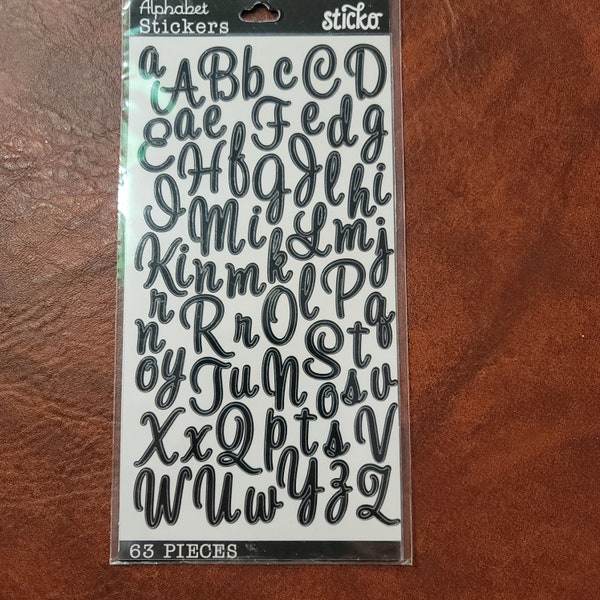 Alphabet
Stickers
sticko
a A B b c C D
E a e F e d g
H f g J l h i
I M i L m j
K i n m k
r R r O l P q
n S t
o y T u N o s v
X x Q p t s V
W U w Y z Z
63 PIECES